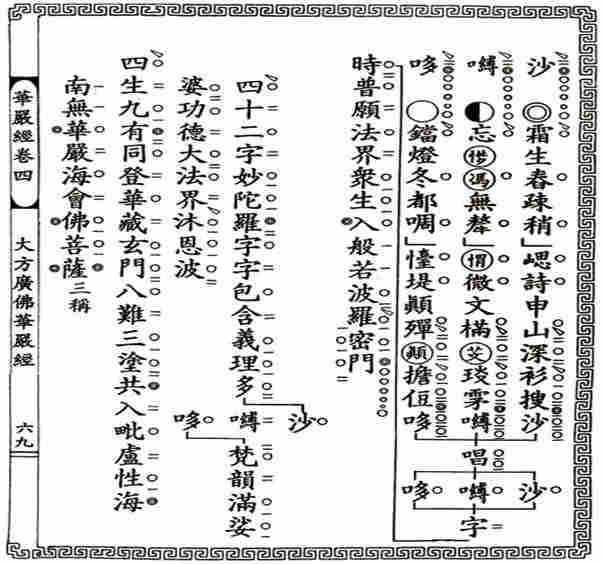 沙 ◎霜生春疎稍」詩申山深衫搜沙 沙
嚩 ◐忘馮無」微文樠琰雱嚩 唱 嚩 字
哆 ○鐺燈冬都啁」堤顛殫顛擔哆 哆
時普願法界衆生入般若波羅密門
四十二字妙陀羅字字包含義理多 沙嚩哆 梵韻滿娑
婆功德大法界沐恩波
四生九有同登華藏玄門八難三塗共入毗盧性海
南無華嚴海會佛菩薩三稱
華嚴經卷四 大方廣佛華嚴經 六九